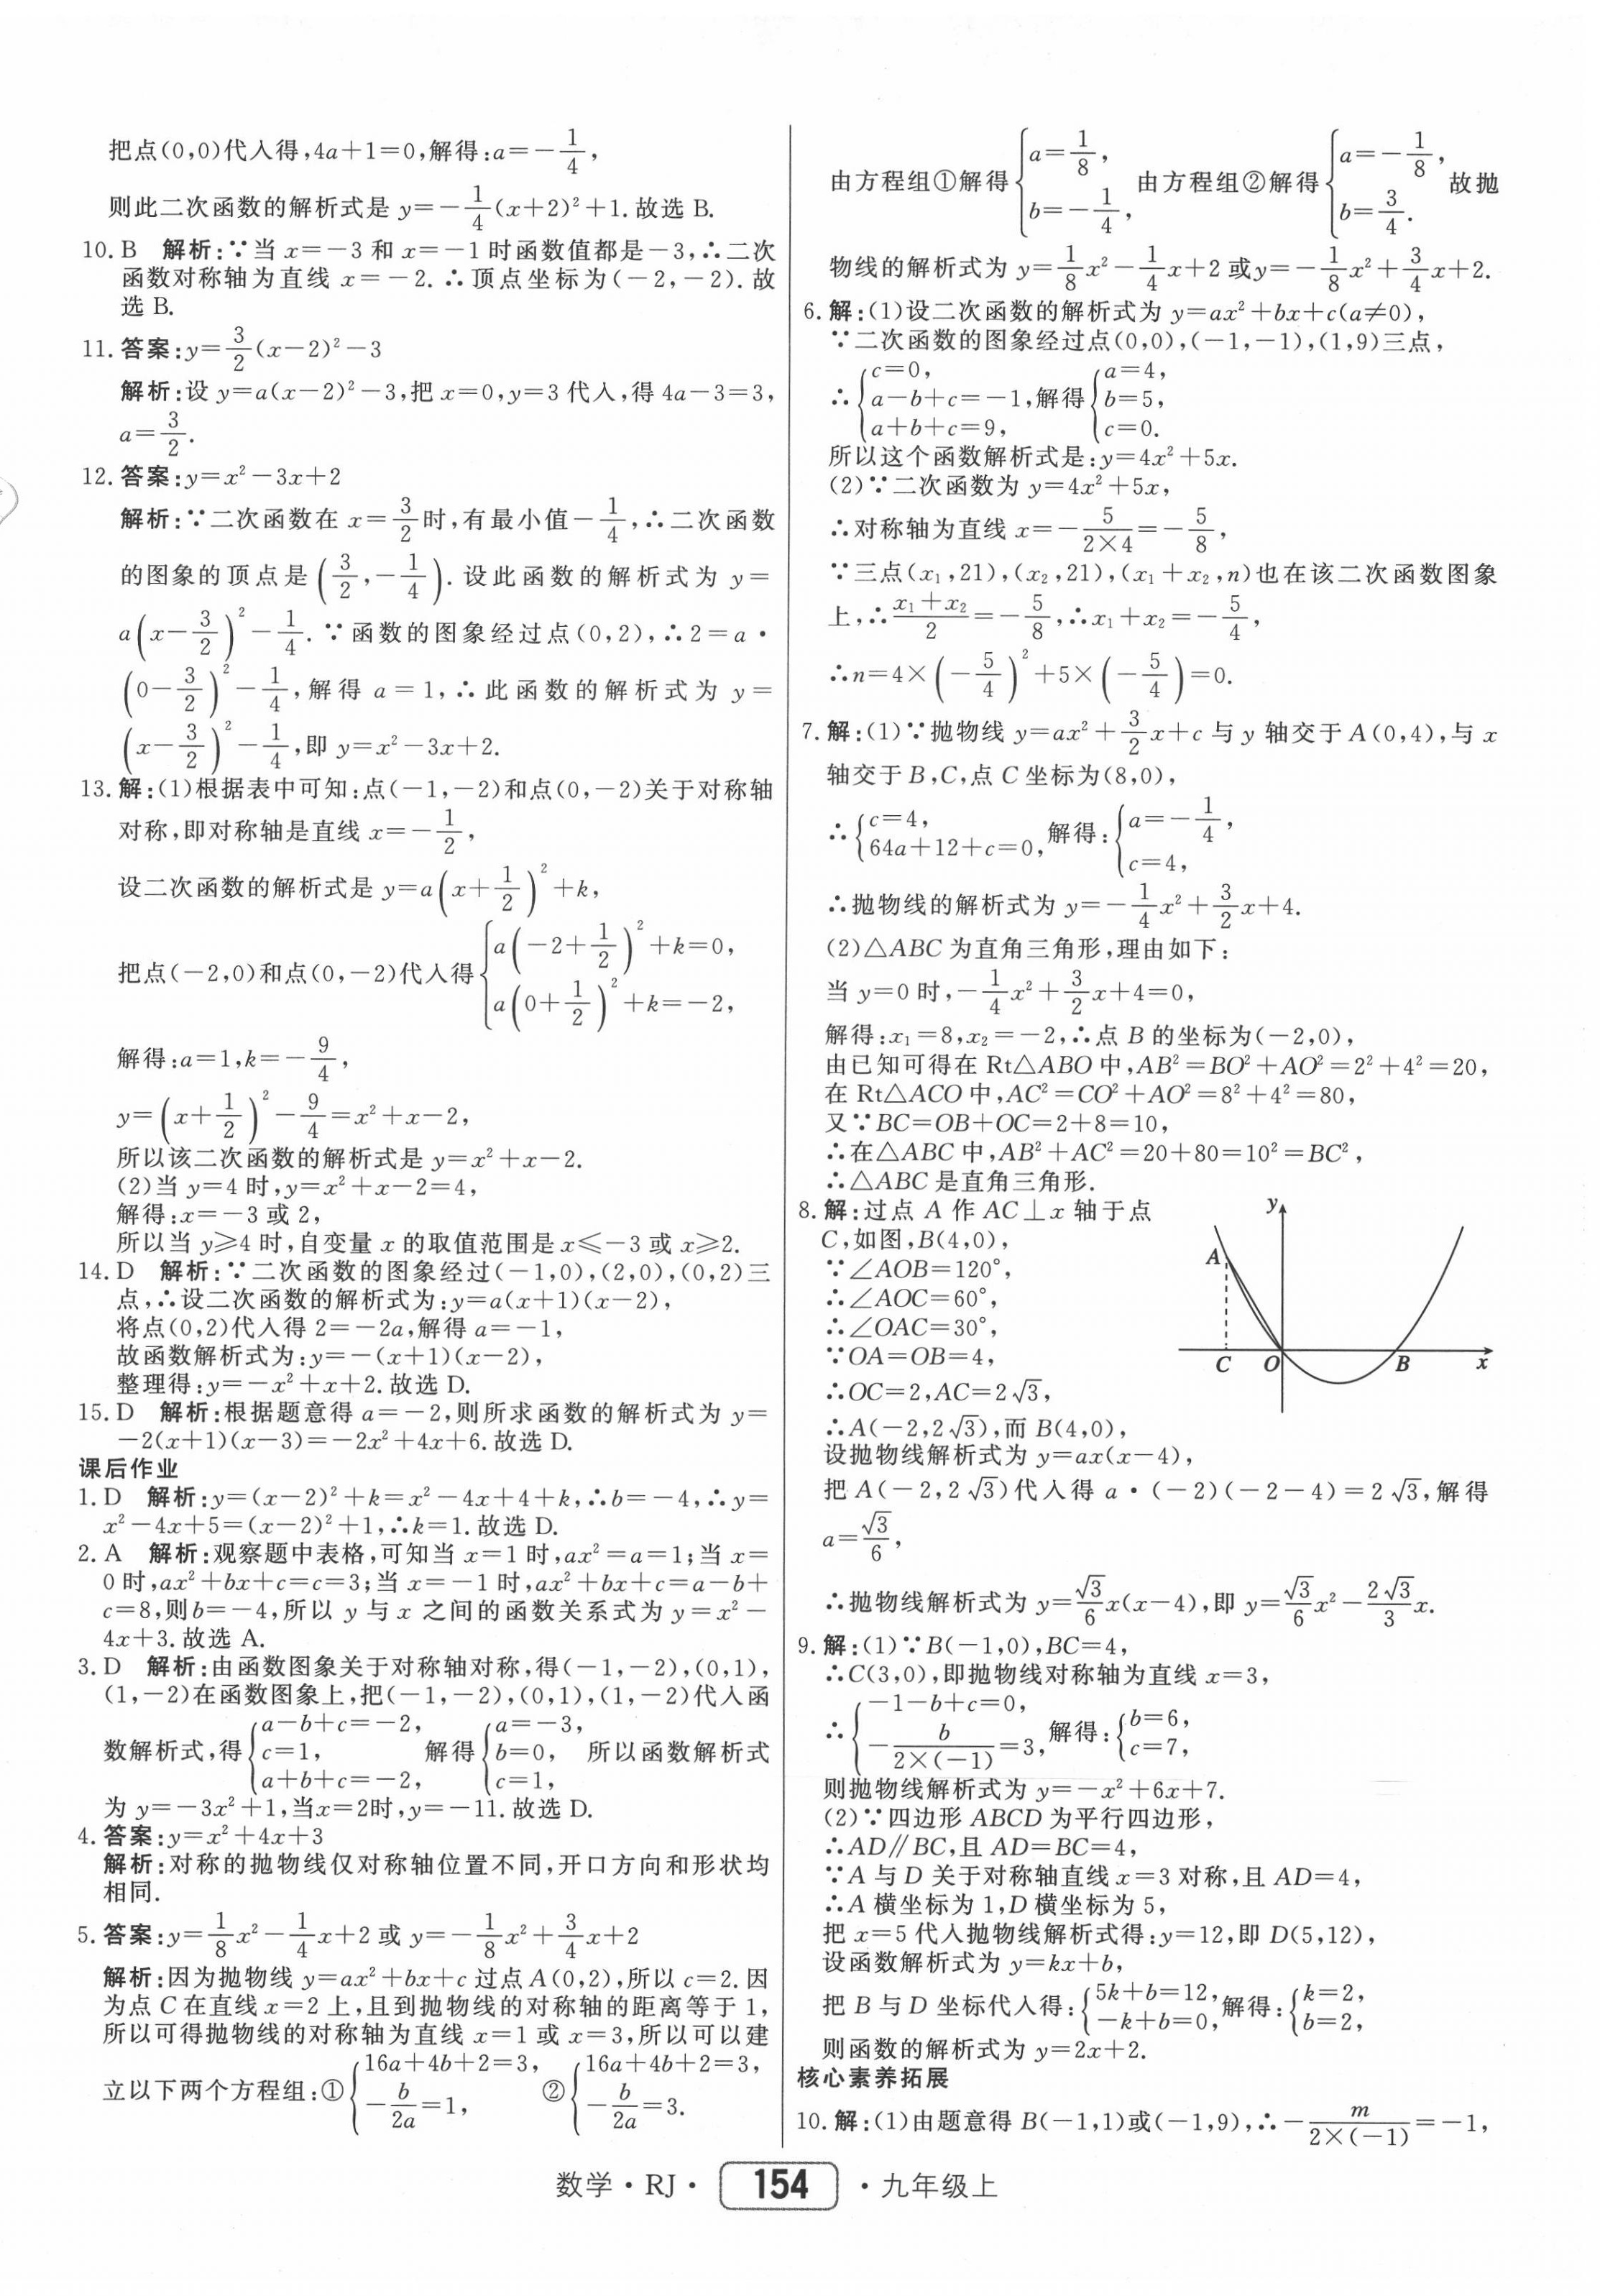 把点(0,0)代入得,4a+1=0,解得:a=-1/4,
则此二次函数的解析式是 y=-1/4(x+2)²+1.故选 B.
10. B 解析:∵当 x=-3 和 x=-1 时函数值都是-3,∴二次
函数对称轴为直线 x=-2.∴顶点坐标为(-2,-2).故
选 B.
11. 答案:y=3/2(x-2)²-3
解析:设 y=a(x-2)²-3,把 x=0,y=3 代入,得 4a-3=3,
a=3/2.
12. 答案:y=x²-3x+2
解析:∵二次函数在 x=3/2时,有最小值-1/4,∴二次函数
的图象的顶点是(3/2,-1/4).设此函数的解析式为 y=
a(x-3/2)²-1/4.∵函数的图象经过点(0,2),∴2=a·
(0-3/2)²-1/4,解得 a=1,∴此函数的解析式为 y=
(x-3/2)²-1/4,即 y=x²-3x+2.
13. 解:(1)根据表中可知:点(-1,-2)和点(0,-2)关于对称轴
对称,即对称轴是直线 x=-1/2,
设二次函数的解析式是 y=a(x+1/2)²+k,
把点(-2,0)和点(0,-2)代入得{a(-2+1/2)²+k=0, a(0+1/2)²+k=-2,
解得:a=1,k=-9/4,
y=(x+1/2)²-9/4=x²+x-2,
所以该二次函数的解析式是 y=x²+x-2.
(2)当 y=4 时,y=x²+x-2=4,
解得:x=-3 或 2,
所以当 y≥4 时,自变量 x 的取值范围是 x≤-3 或 x≥2.
14. D 解析:∵二次函数的图象经过(-1,0),(2,0),(0,2)三
点,∴设二次函数的解析式为:y=a(x+1)(x-2),
将点(0,2)代入得 2=-2a,解得 a=-1,
故函数解析式为:y=-(x+1)(x-2),
整理得:y=-x²+x+2.故选 D.
15. D 解析:根据题意得 a=-2,则所求函数的解析式为 y=
-2(x+1)(x-3)=-2x²+4x+6.故选 D.
课后作业
1. D 解析:y=(x-2)²+k=x²-4x+4+k,∴b=-4,∴y=
x²-4x+5=(x-2)²+1,∴k=1.故选 D.
2. A 解析:观察题中表格,可知当 x=1 时,ax²=a=1;当 x=
0 时,ax²+bx+c=c=3;当 x=-1 时,ax²+bx+c=a-b+
c=8,则b=-4,所以 y 与 x 之间的函数关系式为 y=x²-
4x+3.故选 A.
3. D 解析:由函数图象关于对称轴对称,得(-1,-2),(0,1),
(1,-2)在函数图象上,把(-1,-2),(0,1),(1,-2)代入函
数解析式,得{a-b+c=-2, c=1, a+b+c=-2, 解得{a=-3, b=0, c=1, 所以函数解析式
为 y=-3x²+1,当x=2时,y=-11.故选 D.
4. 答案:y=x²+4x+3
解析:对称的抛物线仅对称轴位置不同,开口方向和形状均
相同.
5. 答案:y=1/8x²-1/4x+2 或 y=-1/8x²+3/4x+2
解析:因为抛物线 y=ax²+bx+c 过点 A(0,2),所以 c=2.因
为点 C 在直线 x=2 上,且到抛物线的对称轴的距离等于 1,
所以可得抛物线的对称轴为直线 x=1 或 x=3,所以可以建
立以下两个方程组:①{16a+4b+2=3, -b/2a=1, ②{16a+4b+2=3, -b/2a=3.
由方程组①解得{a=1/8, b=-1/4, 由方程组②解得{a=-1/8, b=3/4. 故抛
物线的解析式为 y=1/8x²-1/4x+2 或y=-1/8x²+3/4x+2.
6. 解:(1)设二次函数的解析式为 y=ax²+bx+c(a≠0),
∵二次函数的图象经过点(0,0),(-1,-1),(1,9)三点,
∴{c=0, a-b+c=-1, a+b+c=9, 解得{a=4, b=5, c=0.
所以这个函数解析式是:y=4x²+5x.
(2)∵二次函数为 y=4x²+5x,
∴对称轴为直线 x=-5/(2×4)=-5/8,
∵三点(x₁,21),(x₂,21),(x₁+x₂,n)也在该二次函数图象
上,∴(x₁+x₂)/2=-5/8,∴x₁+x₂=-5/4,
∴n=4×(-5/4)²+5×(-5/4)=0.
7. 解:(1)∵抛物线 y=ax²+3/2x+c 与 y 轴交于 A(0,4),与 x
轴交于 B,C,点 C 坐标为(8,0),
∴{c=4, 64a+12+c=0, 解得:{a=-1/4, c=4,
∴抛物线的解析式为 y=-1/4x²+3/2x+4.
(2)△ABC 为直角三角形,理由如下:
当 y=0 时,-1/4x²+3/2x+4=0,
解得:x₁=8,x₂=-2,∴点 B 的坐标为(-2,0),
由已知可得在 Rt△ABO 中,AB²=BO²+AO²=2²+4²=20,
在 Rt△ACO 中,AC²=CO²+AO²=8²+4²=80,
又∵BC=OB+OC=2+8=10,
∴在△ABC 中,AB²+AC²=20+80=10²=BC²,
∴△ABC 是直角三角形.
8. 解:过点 A 作 AC⊥x 轴于点
C,如图,B(4,0),
∵∠AOB=120°,
∴∠AOC=60°,
∴∠OAC=30°,
∵OA=OB=4,
∴OC=2,AC=2√3,
∴A(-2,2√3),而 B(4,0),
y
A
C O B x
设抛物线解析式为 y=ax(x-4),
把 A(-2,2√3)代入得 a·(-2)(-2-4)=2√3,解得
a=√3/6,
∴抛物线解析式为 y=√3/6x(x-4),即 y=√3/6x²-2√3/3x.
9. 解:(1)∵B(-1,0),BC=4,
∴C(3,0),即抛物线对称轴为直线 x=3,
∴{-1-b+c=0, -b/(2×(-1))=3, 解得:{b=6, c=7,
则抛物线解析式为 y=-x²+6x+7.
(2)∵四边形 ABCD 为平行四边形,
∴AD∥BC,且 AD=BC=4,
∵A 与 D 关于对称轴直线 x=3 对称,且 AD=4,
∴A 横坐标为 1,D 横坐标为 5,
把 x=5 代入抛物线解析式得:y=12,即 D(5,12),
设函数解析式为 y=kx+b,
把 B 与 D 坐标代入得:{5k+b=12, -k+b=0, 解得:{k=2, b=2,
则函数的解析式为 y=2x+2.
核心素养拓展
10. 解:(1)由题意得 B(-1,1)或(-1,9),∴-m/(2×(-1))=-1,
数学·RJ· 154 ·九年级上